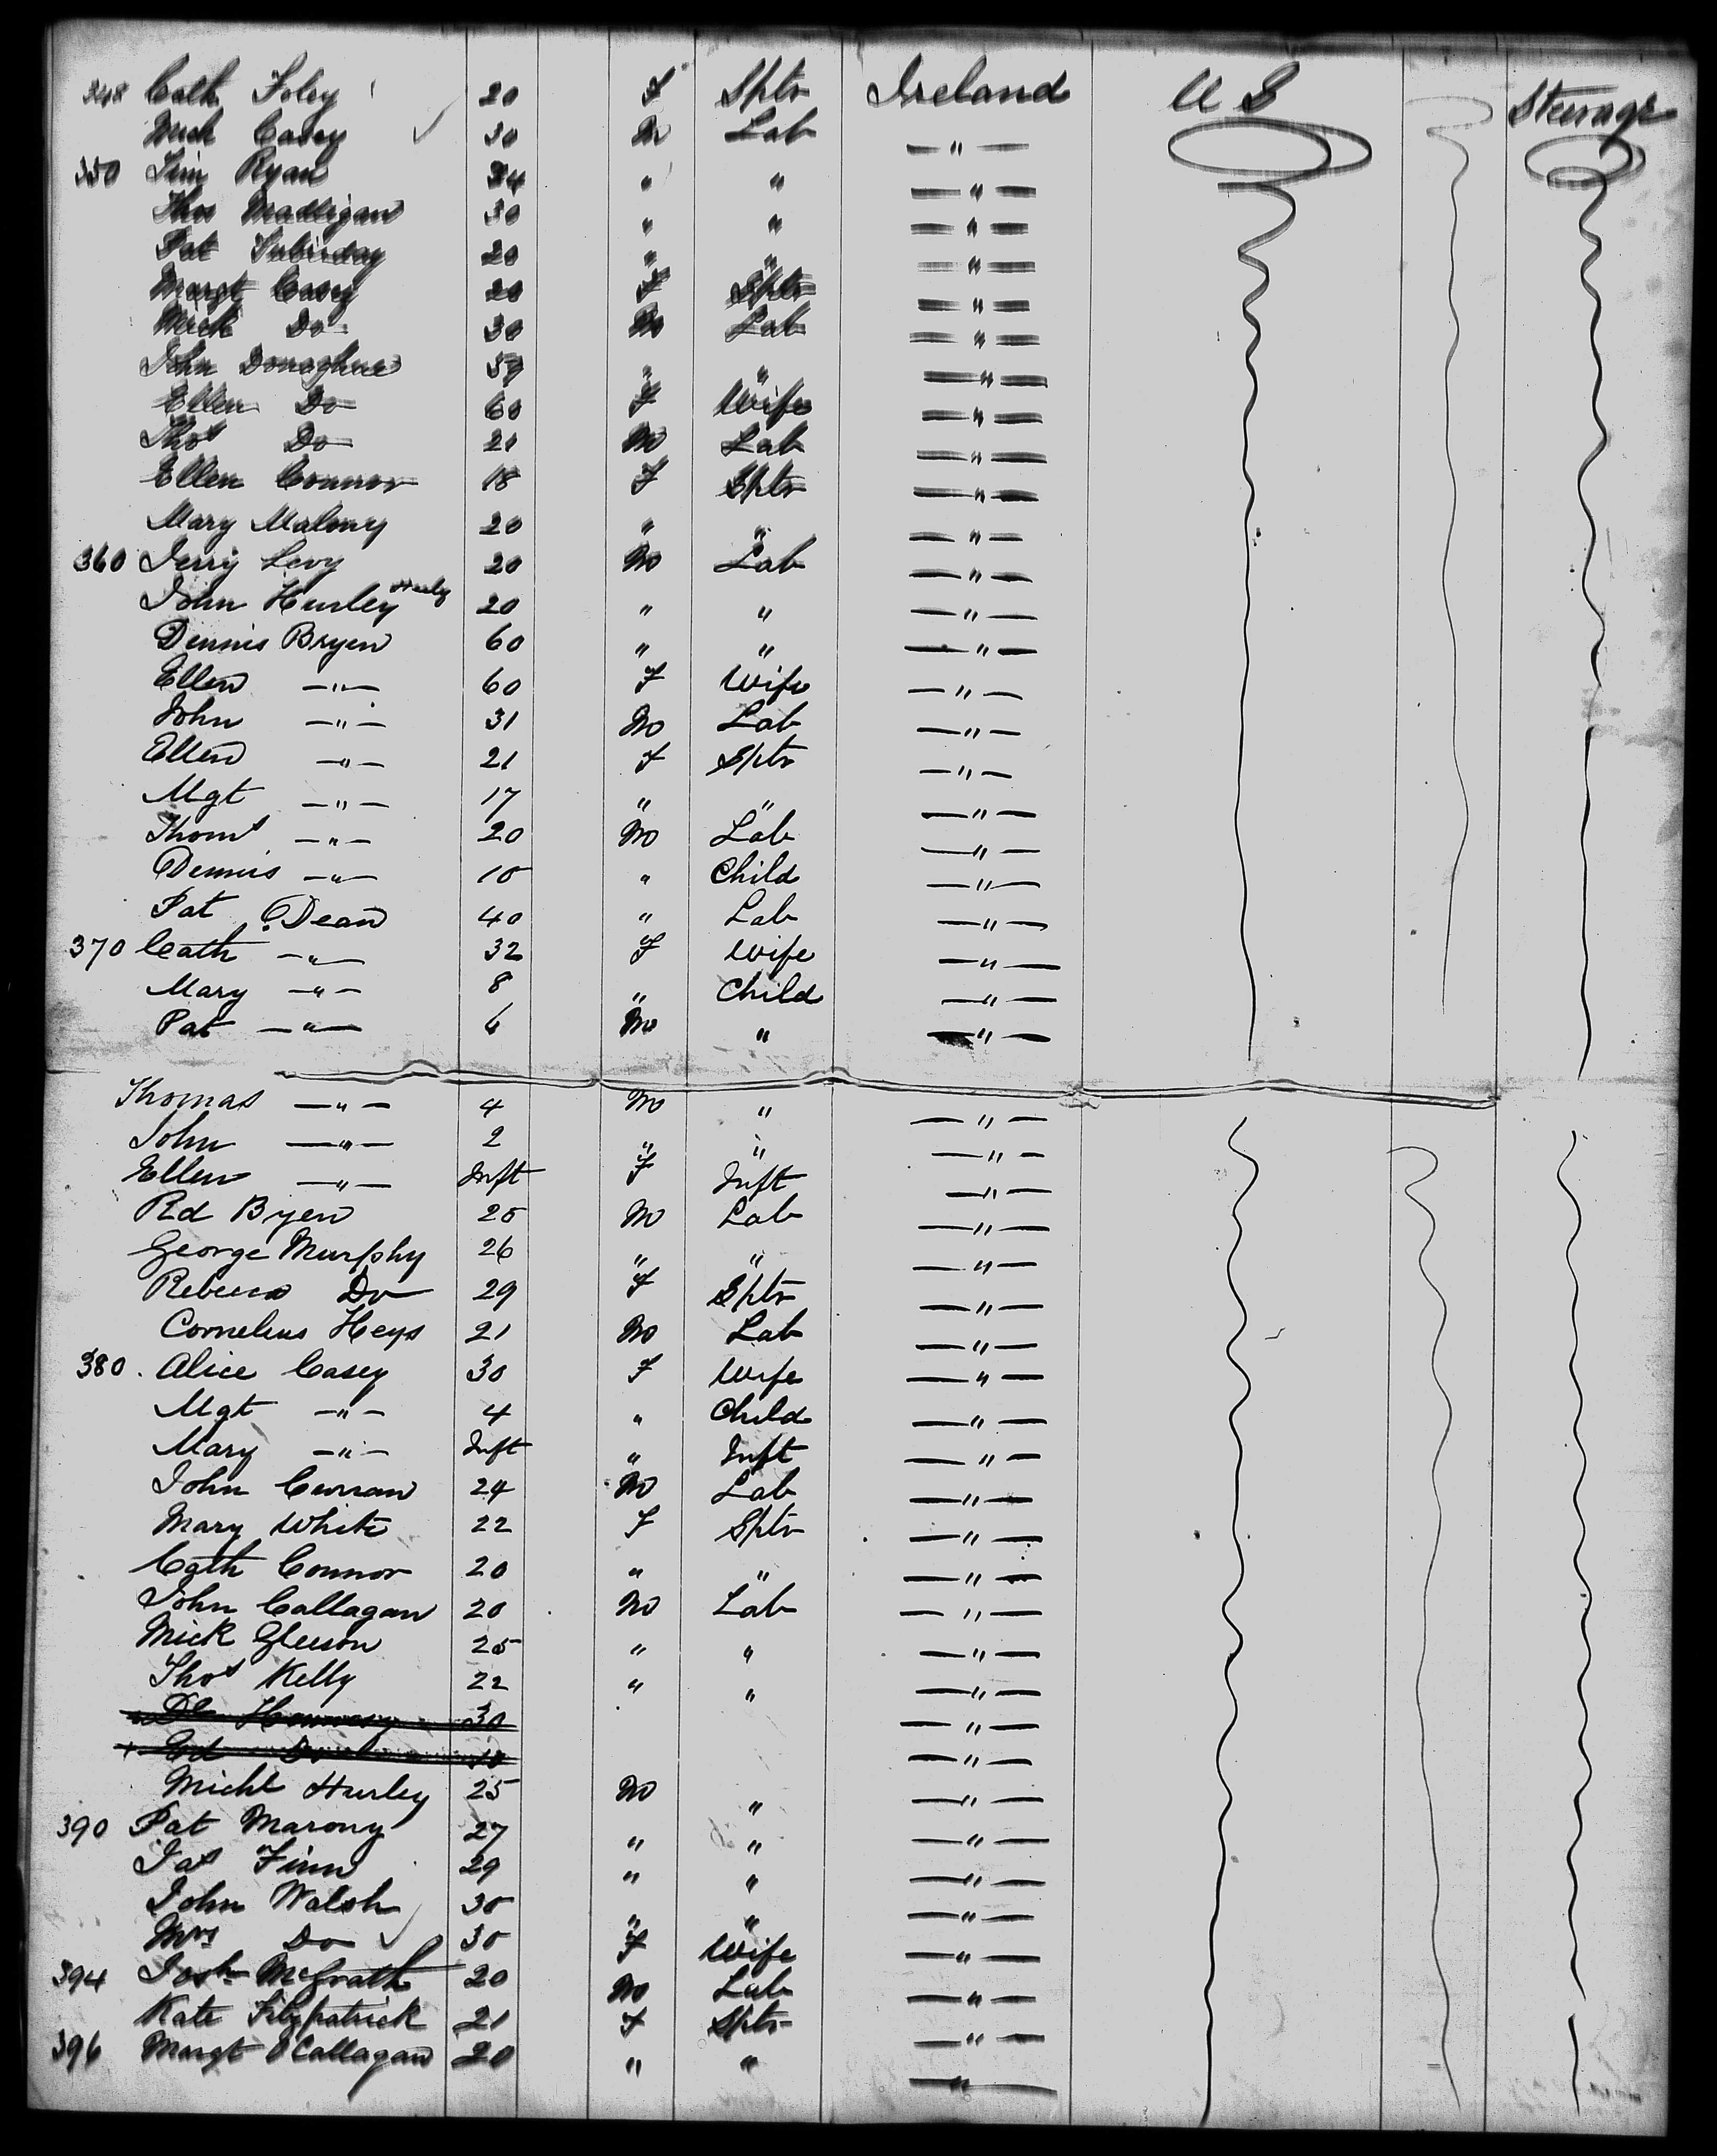 348 Cath Foley 20 F Sptr Ireland U S Steerage
Mick Casey ✓ 30 M Lab — " —
350 Tim Ryan 24 " " — " —
Thos Madligan 30 " " — " —
Pat 20 " " — " —
Margt Casey 20 F Sptr — " —
Mick Do 30 M Lab — " —
John Donaghue 59 " " — " —
Ellen Do 60 F Wife — " —
Thos Do 21 M Lab — " —
Ellen Connor 18 F Sptr — " —
Mary Malony 20 " " — " —
360 Jerry Levy 20 M Lab — " —
John Hurley 20 " " — " —
Dennis Bryen 60 " " — " —
Ellen — " — 60 F Wife — " —
John — " — 31 M Lab — " —
Ellen — " — 21 F Sptr — " —
Mgt — " — 17 " " — " —
Thoms — " — 20 M Lab — " —
Dennis — " — 10 " Child — " —
Pat Dean 40 " Lab — " —
370 Cath — " — 32 F Wife — " —
Mary — " — 8 " Child — " —
Pat — " — 6 M " — " —
Thomas — " — 4 M " — " —
John — " — 2 " " — " —
Ellen — " — Inft F Inft — " —
Rd Byen 20 M Lab — " —
George Murphy 26 " " — " —
Rebecca Do 29 F Sptr — " —
Cornelius Heys 21 M Lab — " —
380 . Alice Casey 30 F Wife — " —
Mgt — " — 4 " Child — " —
Mary — " — Inft " Inft — " —
John Curran 24 M Lab — " —
Mary White 22 F Sptr — " —
Cath Connor 20 " " — " —
John Callagan 20 M Lab — " —
Mick Gleeson 25 " " — " —
Thos Kelly 22 " " — " —
Hennesy 30 — " —
Ed Do — " —
Michl Hurley 25 M " — " —
390 Pat Marony 27 " " — " —
Jas Finn 29 " " — " —
John Walsh 30 " " — " —
Mrs Do ✓ 30 F Wife — " —
394 Josh McGrath 20 M Lab — " —
Kate Fitzpatrick 21 F Sptr — " —
396 Margt O Callagan 20 " " — " —